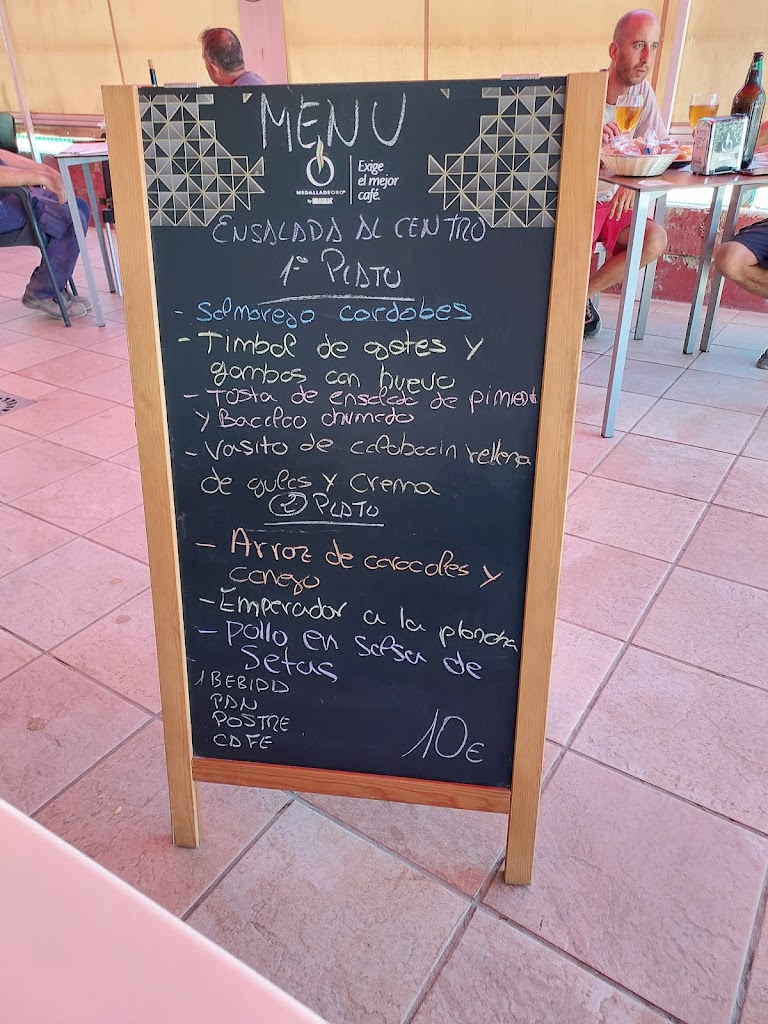 MENU
MEDALLADEORO
by BRASILIA
Exige
el mejor
café.
ENSALADA AL CENTRO
1º PLATO
- Salmorejo cordobes
- Timbal de gotes y
gambas con huevo
- Tosta de ensalada de pimient
y Bacalao ahumado
- Vasito de calabacin rellena
de gulas y crema
2 PLATO
- Arroz de caracoles y
conejo
- Emperador a la plancha
- Pollo en salsa de
setas
1 BEBIDA
PAN
POSTRE
CAFE
10€